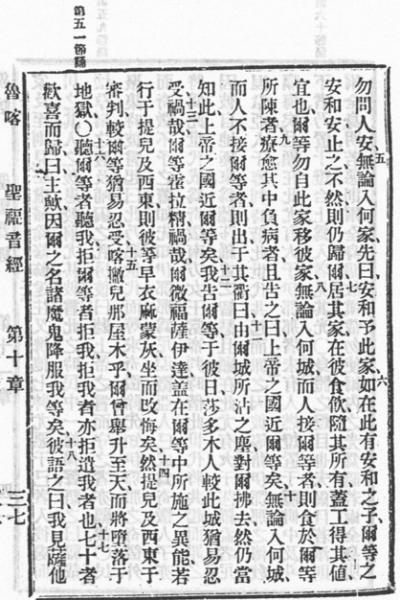 勿問人安無論入何家先曰安和予此家如在此有安和之子爾等之
安和安止之不然則仍歸爾居其家在彼食飲隨其所有蓋工得其値
宜也爾等勿自此家移彼家無論入何城而人接爾等者則食於爾等
所陳者療愈其中負病者且告之曰上帝之國近爾等矣無論入何城
而人不接爾等者則出于其衢曰由爾城所沾之塵對爾拂去然仍當
知此上帝之國近爾等矣我告爾等于彼日莎多木人較此城猶易忍
受禍哉爾等
拉精禍哉爾微福薩伊達蓋在爾等中所施之異能若
行于提兒及西東則彼等早衣麻蒙灰坐而改悔矣然提兒及西東于
審判較爾等猶易忍受喀撇兒那屋木乎爾曾舉升至天而將墮落于
地獄〇聽爾等者聽我拒爾等者拒我拒我者亦拒遣我者也七十者
歡喜而歸曰主歟因爾之名諸魔鬼降服我等矣彼語之曰我見薩他
五
六
七
八
九
十
十一
十二
十三
十四
十五
十六
十七
十八
魯喀
聖福音經
第十章
三七